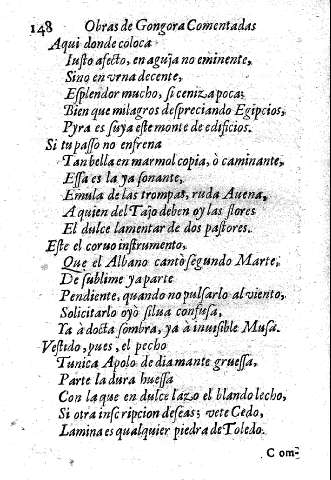 148 Obras de Gongora Comentadas
Aqui donde coloca
Iusto afecto, en aguja no eminente,
Sino en vrna decente,
Esplendor mucho, si ceniza poca;
Bien que milagros despreciando Egipcios,
Pyra es suya este monte de edificios.
Si tu passo no enfrena
Tan bella en marmol copia, ò caminante,
Essa es la ya sonante,
Emula de las trompas, ruda Auena,
A quien del Tajo deben oy las flores
El dulce lamentar de dos pastores.
Este el coruo instrumento,
Que el Albano cantò segundo Marte,
De sublime ya parte
Pendiente, quando no pulsarlo al viento,
Solicitarlo oyò silua confusa,
Ya à docta sombra, ya à inuisible Musa.
Vestido, pues, el pecho
Tunica Apolo de diamante gruessa,
Parte la dura huessa
Con la que en dulce lazo el blando lecho,
Si otra inscripcion deseas; vete Cedo,
Lamina es qualquier piedra de Toledo.
Com-